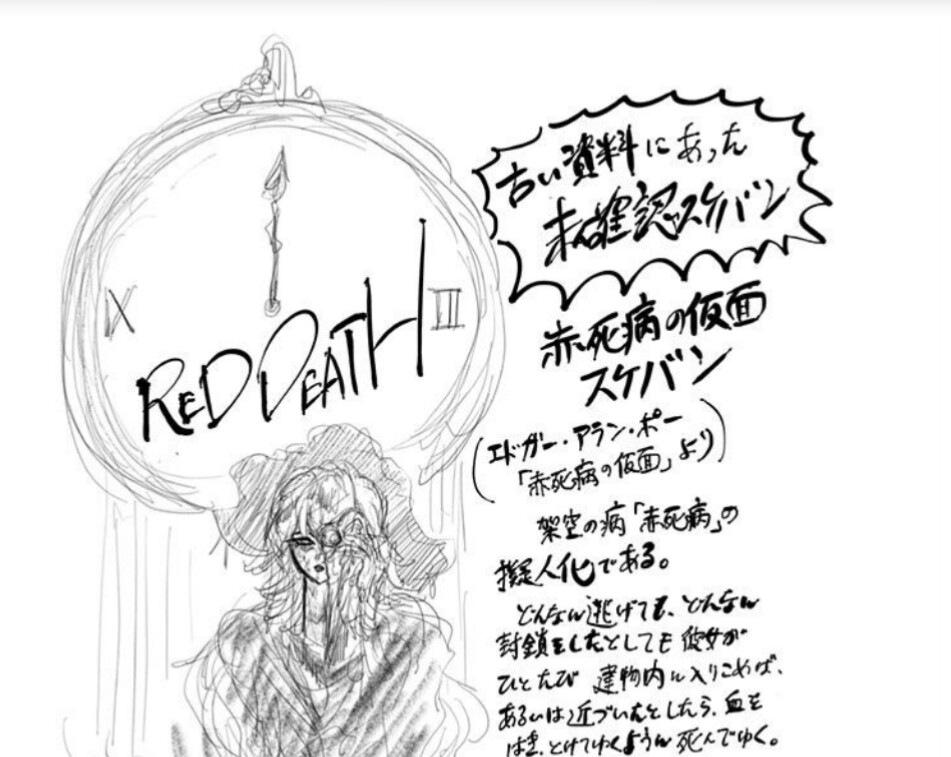 X
III
RED DEATH
古い資料にあった
未確認スケバン
赤死病の仮面
スケバン
(エドガー・アラン・ポー
「赤死病の仮面」より)
架空の病「赤死病」の
擬人化である。
どんなに逃げても、どんな
封鎖をしたとしても彼女が
ひとたび 建物内に入りこめば、
あるいは近づいたとしたら、血を
はき、とけてゆくように死んでゆく。